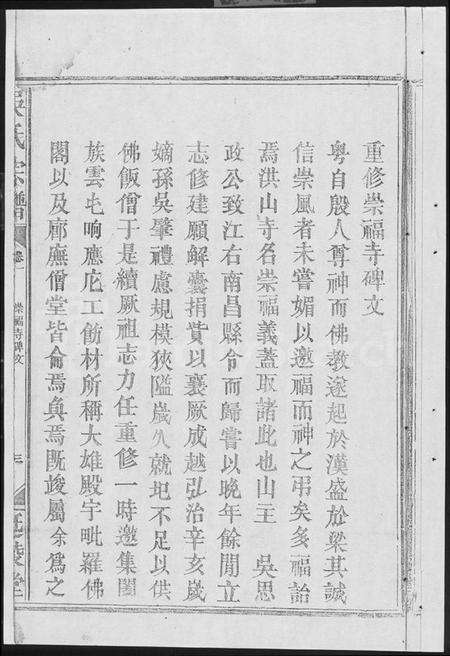 重修崇福寺碑文
粵自殷人尊神而佛教遂起於漢盛於梁其誠
信崇風者未嘗媚以邀福而神之弔矣多福詒
焉洪山寺名崇福義蓋取諸此也山主 吳思
政公致江右南昌縣令而歸嘗以晚年餘閒立
志修建願解囊捐貲以襄厥成越弘治辛亥歲
嫡孫吳肇禮慮規模狹隘歲久就圯不足以供
佛飯僧于是續厥祖志力任重修一時邀集闔
族雲屯响應庀工飭材所稱大雄殿宇毗羅佛
閣以及廊廡僧堂皆侖焉奐焉既竣屬余為之
氏宗譜
卷一
崇福寺碑文
堂